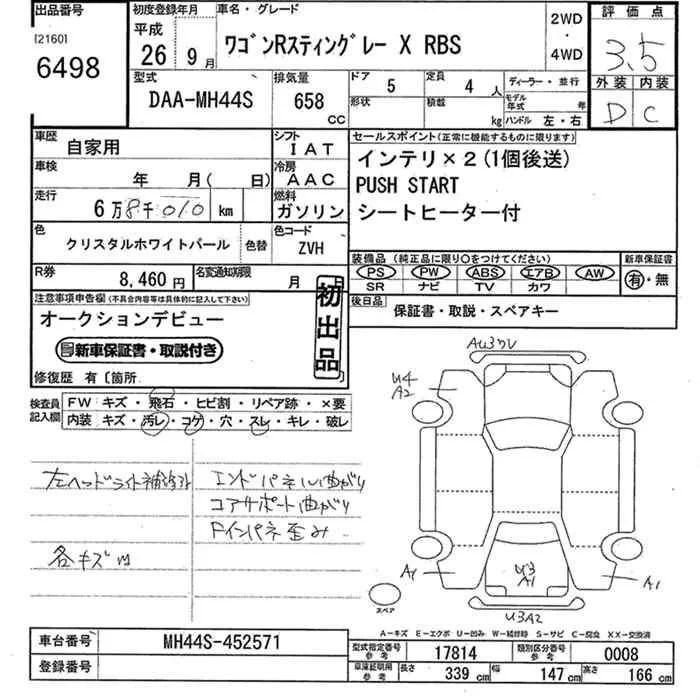 出品番号
[2160]
6498
初度登録年月
平成
26年 9月
車名・グレード
ワゴンRスティングレー X RBS
2WD
・
4WD
評価点
3.5
外装 内装
D C
型式
DAA-MH44S
排気量
658
CC
ドア 5
定員 4 人
形状
積載 kg
ディーラー・並行
モデル年式 年
ハンドル 左・右
車歴 自家用
シフト IAT
車検 年 月( 日)
冷房 AAC
走行 6万8千010 km
燃料 ガソリン
セールスポイント(正常に機能するものに限ります)
インテリ×2(1個後送)
PUSH START
シートヒーター付
色 クリスタルホワイトパール 色替
色コード ZVH
装備品 (純正品に限り○をつけてください)
PS PW ABS エアB AW
SR ナビ TV カワ
新車保証書
有・無
R券 8,460円
名変通知期限 月 日
後日品 保証書・取説・スペアキー
注意事項申告欄(不具合内容等は具体的に記入して下さい)
オークションデビュー
新車保証書・取説付き
初出品
修復歴 有〔箇所
検査員記入欄
FW キズ・飛石・ヒビ割・リペア跡・×要
内装 キズ・汚レ・コゲ・穴・スレ・キレ・破レ
左ヘッドライト補修跡
各キズ凹
エンドパネル曲がり
コアサポート曲がり
Fインパネ歪み
U4
A2
A1
U3
A1
A1
U3A2
スペア
A-キズ E-エクボ U-凹み W-補修時 S-サビ C-腐食 XX-交換済
車台番号 MH44S-452571
登録番号
型式指定番号 参考 17814
類別区分番号 参考 0008
車庫証明用 参考
長さ 339 cm 幅 147 cm 高さ 166 cm